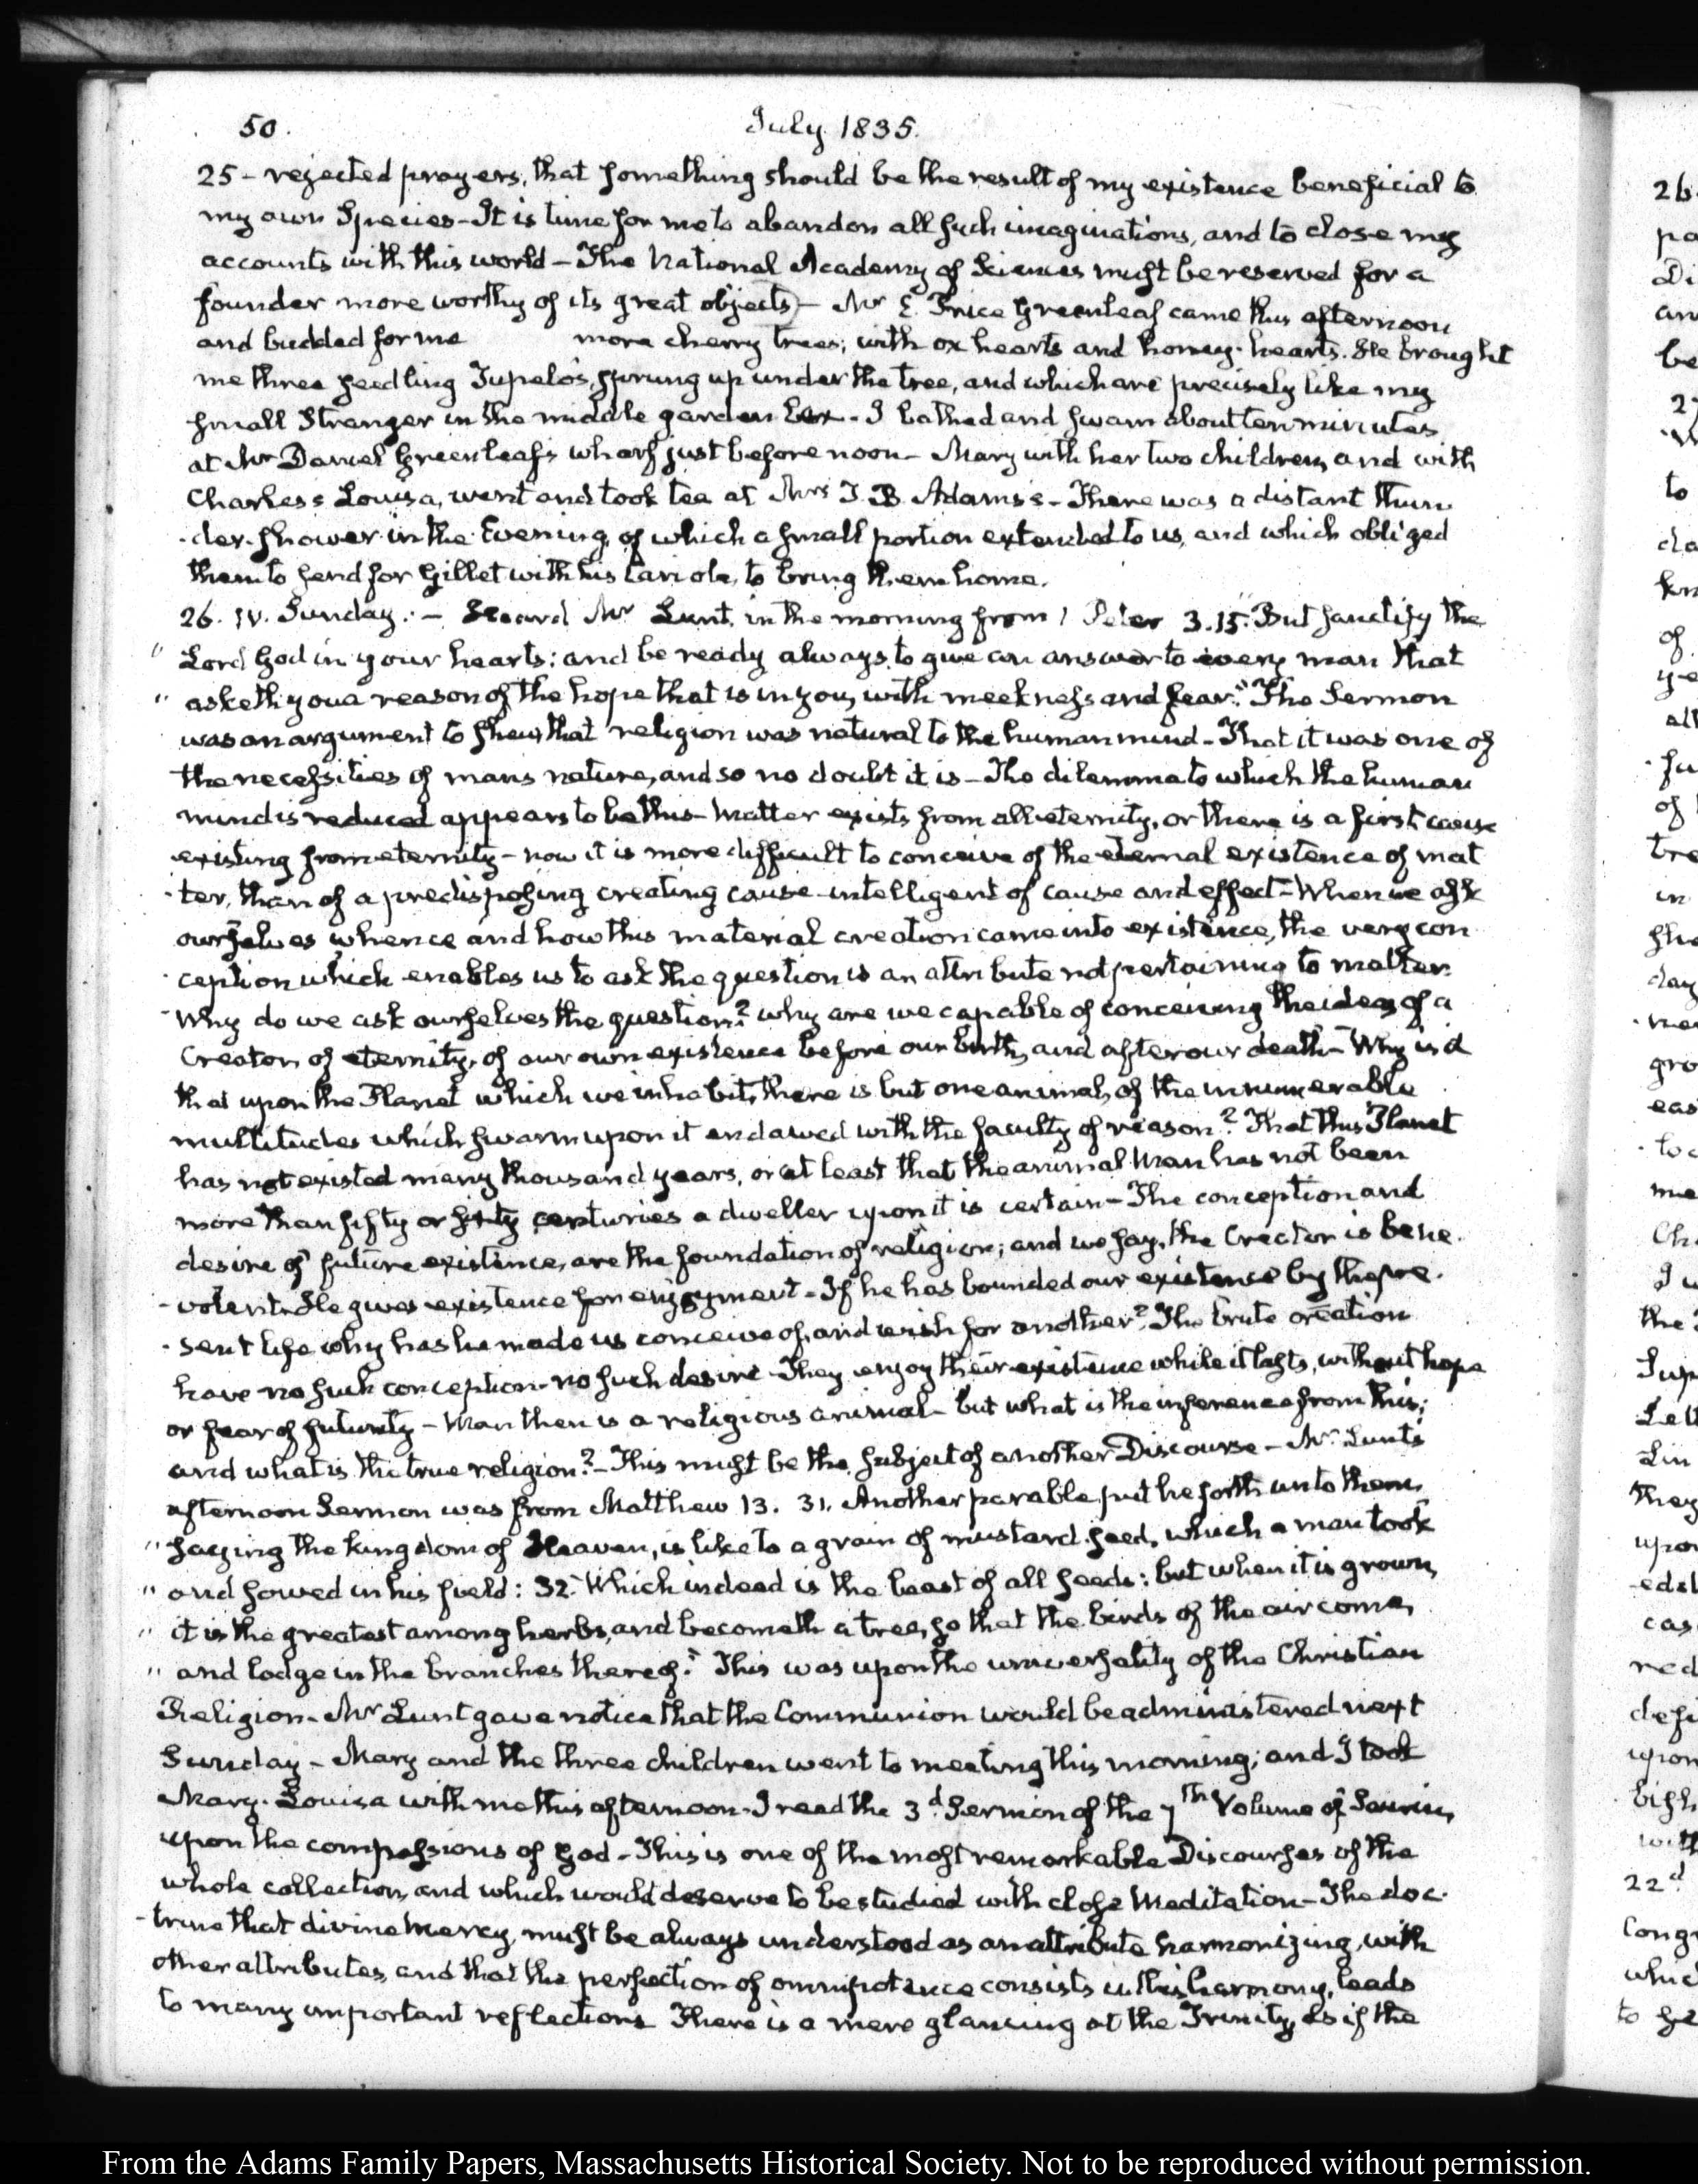 50.
July 1835.
25 - rejected prayers, that something should be the result of my existence beneficial to
my own Species - It is time for me to abandon all such imaginations, and to close my
accounts with this world - The National Academy of Sciences must be reserved for a
founder more worthy of its great objects) - Mr E. Price Greenleaf came this afternoon
and budded for me more cherry trees; with ox hearts and honey-hearts. He brought
me three seedling Tupelo's, sprung up under the tree, and which are precisely like my
small Stranger in the middle garden box - I bathed and swam about ten minutes
at Mr Daniel Greenleaf's wharf just before noon - Mary with her two children, and with
Charles's Louisa, went and took tea at Mrs T. B. Adams's - There was a distant thun
-der-shower in the Evening, of which a small portion extended to us, and which obliged
them to send for Gillet with his Cariole, to bring them home.
26. IV. Sunday. - Heard Mr Lunt, in the morning from 1 Peter 3.15. "But sanctify the
" Lord God in your hearts: and be ready always to give an answer to every man that
" asketh you a reason of the hope that is in you, with meekness and fear." The Sermon
was an argument to shew that religion was natural to the human mind - That it was one of
the necessities of mans nature, and so no doubt it is - The dilemma to which the human
mind is reduced appears to be this - Matter exists from all eternity, or there is a first cause
existing from eternity - now it is more difficult to conceive of the eternal existence of mat
-ter, than of a predisposing creating cause - intelligent of cause and effect - When we ask
ourselves whence and how this material creation came into existence, the very con
-ception which enables us to ask the question is an attribute not pertaining to matter.
Why do we ask ourselves the question? why are we capable of conceiving the idea of a
Creator, of eternity, of our own existence before our birth, and after our death - Why is it
that upon the Planet which we inhabit, there is but one animal, of the innumerable
multitudes which swarm upon it endowed with the faculty of reason? That this Planet
has not existed many thousand years, or at least that the animal Man has not been
more than fifty or sixty centuries a dweller upon it is certain - The conception and
desire of future existence, are the foundation of religion; and we say, the Creator is bene
-volent. He gives existence for enjoyment - If he has bounded our existence by the pre-
-sent life why has he made us conceive of, and wish for another? The brute creation
have no such conception - no such desire - They enjoy their existence while it lasts, without hope
or fear of futurity - Man then is a religious animal - but what is the inference from this;
and what is the true religion? - This must be the subject of another Discourse - Mr Lunt's
afternoon Sermon was from Matthew 13. 31. Another parable put he forth unto them,
" saying the kingdom of Heaven, is like to a grain of mustard seed, which a man took
" and sowed in his field: 32. Which indeed is the least of all seeds: but when it is grown,
" it is the greatest among herbs, and becometh a tree, so that the birds of the air come,
" and lodge in the branches thereof." This was upon the universality of the Christian
Religion - Mr Lunt gave notice that the Communion would be administered next
Sunday - Mary and the three children went to meeting this morning; and I took
Mary-Louisa with me this afternoon - I read the 3d Sermon of the 7th Volume of Saurin,
upon the compassions of God - This is one of the most remarkable Discourses of the
whole collection, and which would deserve to be studied with close Meditation - The doc-
-trine that divine Mercy, must be always understood as an attribute harmonizing, with
other attributes, and that the perfection of omnipotence consists in this harmony, leads
to many important reflections There is a mere glancing at the Trinity, as if the
From the Adams Family Papers, Massachusetts Historical Society. Not to be reproduced without permission.